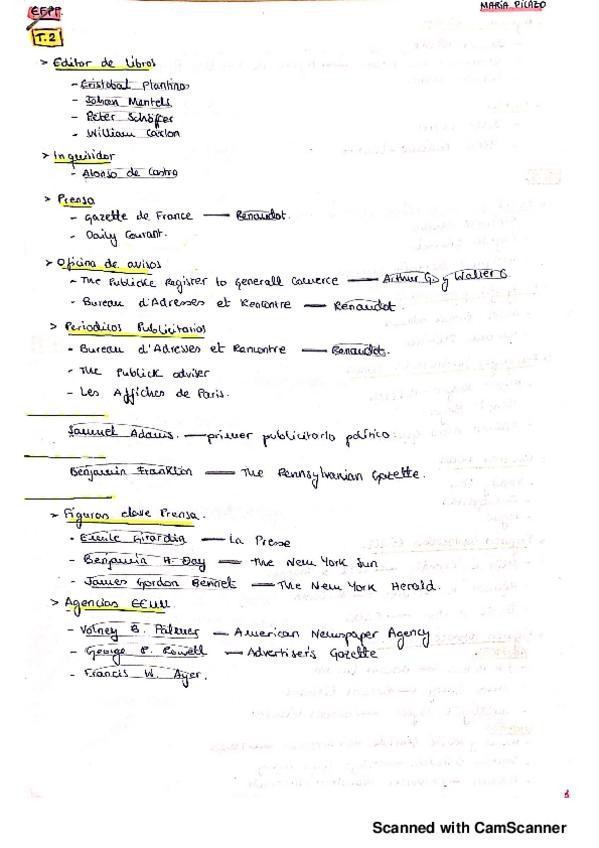 EEPP
MARÍA PICAZO
T.2
> Editor de libros
- Cristobal Plantino
- Johan Mentels
- Peter Schöffer
- William Caxton
> Inquisidor
- Alonso de Castro
> Prensa
- Gazette de France — Renaudot.
- Daily Courant.
> Oficina de avisos
- The Publicke Register to Generall Comerce — Arthur G. y Walter C.
- Bureau d'Adresses et Rencontre — Renaudot.
> Periodicos Publicitarios
- Bureau d'Adresses et Rencontre — Renaudot.
- The Publick adviser
- Les Affiches de Paris.
Samuel Adams. — primer publicitario político.
Benjamin Franklin — The Pennsylvanian Gazette.
> Figuras clave Prensa.
- Emile Girardin — La Presse
- Benjamin H. Day — The New York Sun
- James Gordon Bennet — The New York Herald.
> Agencias EEUU.
- Volney B. Palmer — American Newspaper Agency
- George P. Rowell — Advertisers Gazette
- Francis W. Ayer.
1
Scanned with CamScanner